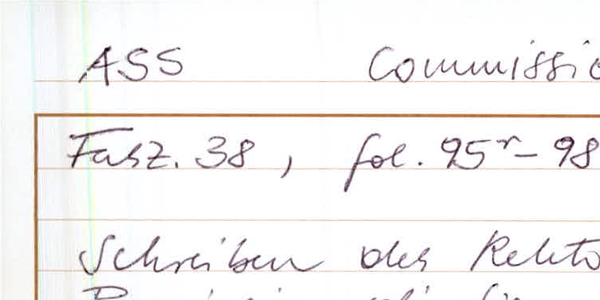 ASS Commissio
Fasz. 38, fol. 95r - 98
Schreiben des Rekto